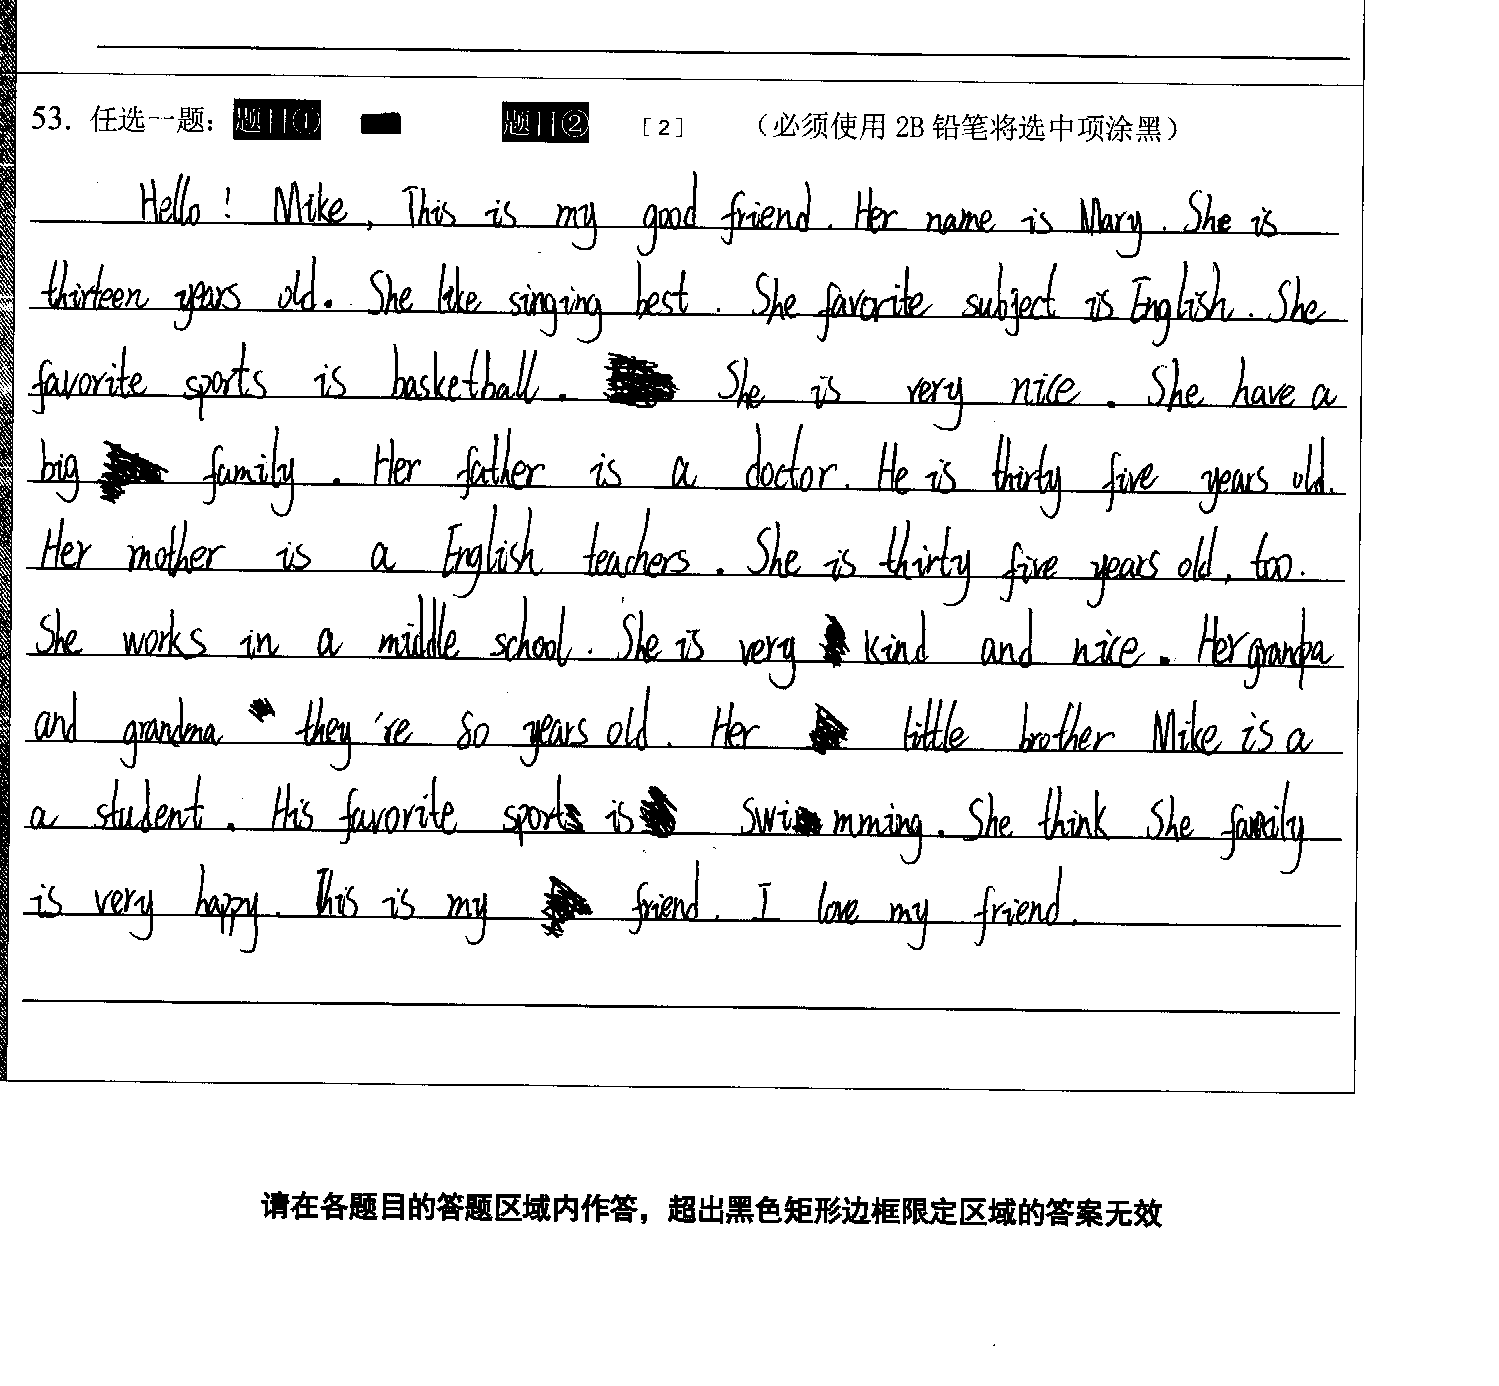 53. 任选一题： 题目① 题目② [2] （必须使用 2B 铅笔将选中项涂黑）
Hello! Mike, This is my good friend. Her name is Mary. She is
thirteen years old. She like singing best. She favorite subject is English. She
favorite sports is basketball. She is very nice. She have a
big family. Her father is a doctor. He is thirty five years old.
Her mother is a English teachers. She is thirty five years old, too.
She works in a middle school. She is very kind and nice. Her grandpa
and grandma they're 80 years old. Her little brother Mike is a
a student. His favorite sports is swimming. She think She family
is very happy. This is my friend. I love my friend.
请在各题目的答题区域内作答，超出黑色矩形边框限定区域的答案无效